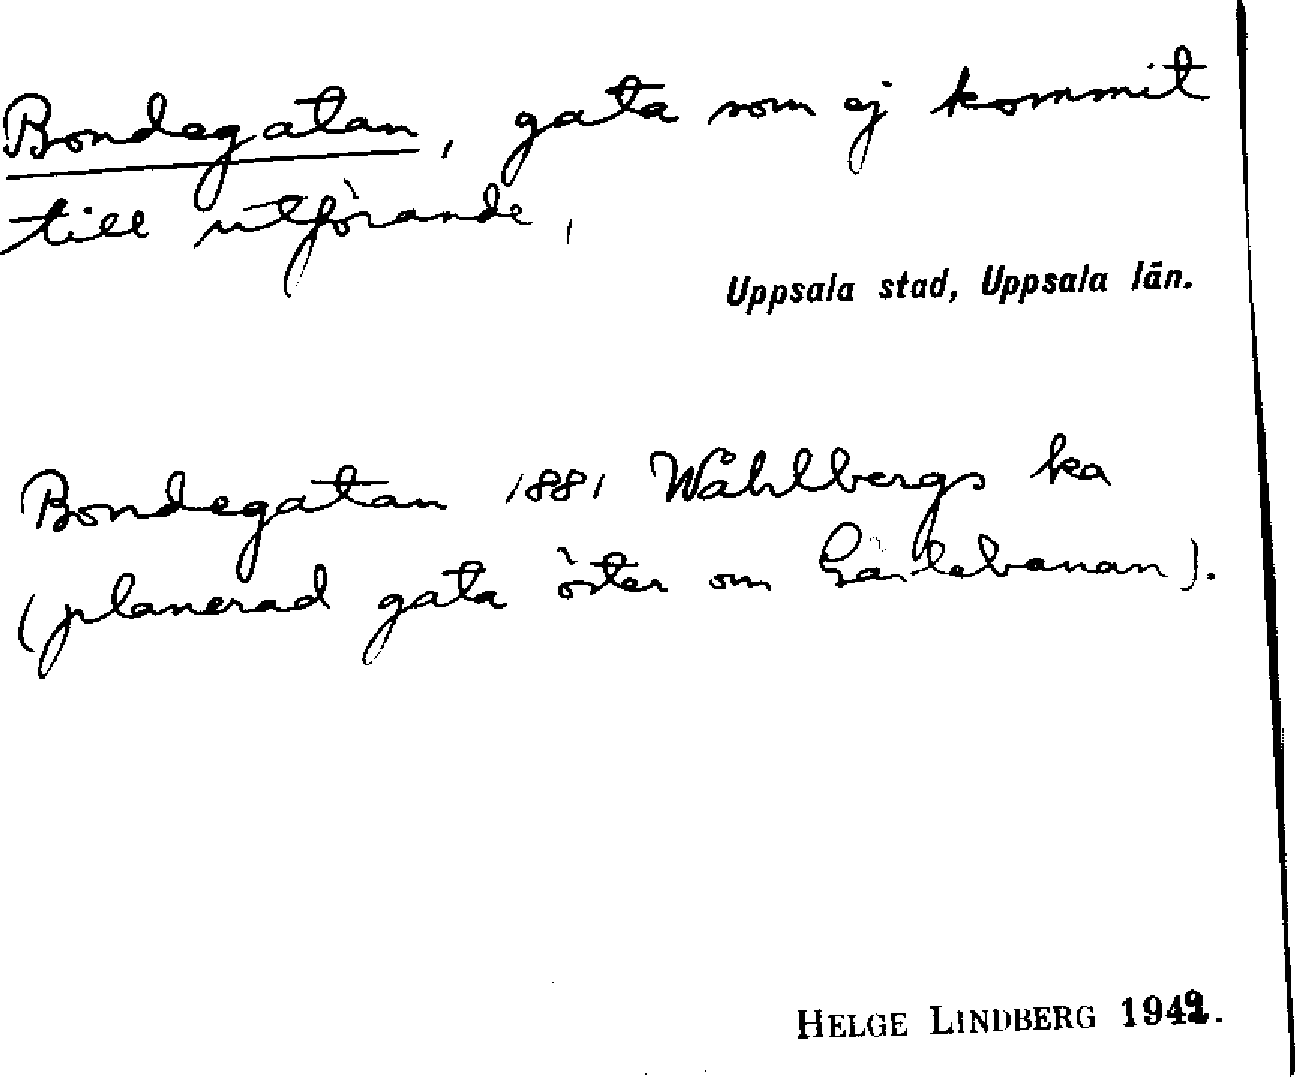 Bondegatan, gata som ej kommit
till utförande,
Uppsala stad, Uppsala län.
Bondegatan 1881 Wåhlbergs ka
(planerad gata öster om Gävlebanan).
HELGE LINDBERG 1949.